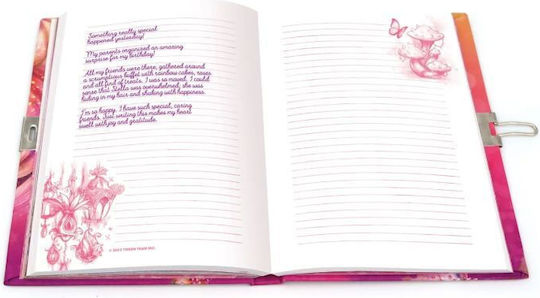 Something really special
happened yesterday!
My parents organized an amazing
surprise for my birthday!
All my friends were there, gathered around
a scrumptious buffet with rainbow cakes, roses
and all kind of treats. I was so moved. I could
sense that Stella was overwhelmed, she was
hiding in my hair and shaking with happiness.
I'm so happy. I have such special, caring
friends. Just writing this makes my heart
swell with joy and gratitude.